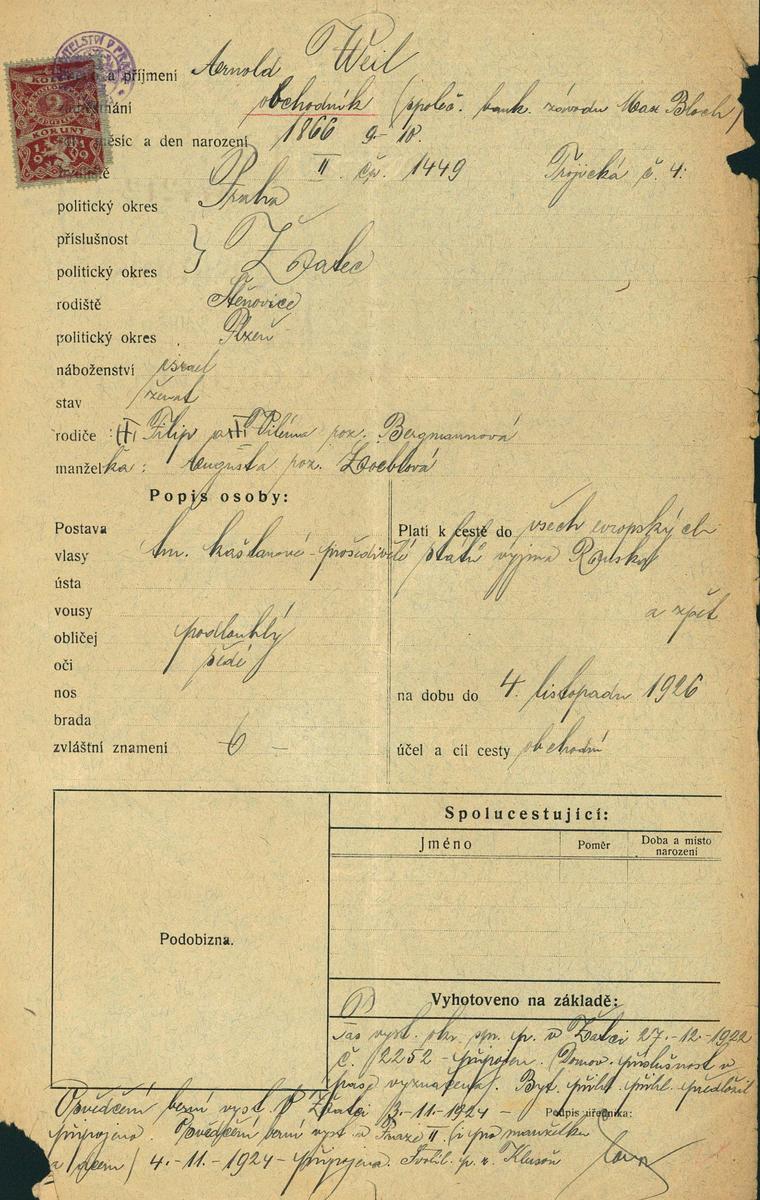 a příjmení Arnold Weil
obchodník (společ. bank. závodu Max Bloch)
měsíc a den narození 1866 9.-10.
Praha II. čp. 1449 Trojická č. 4.
politický okres
příslušnost
politický okres } Žatec
rodiště Štěnovice
politický okres Plzeň
náboženství israel
stav ženat
rodiče : Filip a Viléma roz. Bergmannová
manželka : Augusta roz. Loeblová
Popis osoby:
Postava
vlasy tm. kaštanové - prošedivělé
ústa
vousy
obličej podlouhlý
oči šedé
nos
brada
zvláštní znamení
Platí k cestě do všech evropských
států vyjma Ruska
a zpět
na dobu do 4. listopadu 1926
účel a cíl cesty obchodní
Podobizna.
Spolucestující:
Jméno Poměr Doba a místo narození
Vyhotoveno na základě:
Pas vyst. okr. spr. p. v Žatci 27.-12.-1922
č. 2252 - připojen. Domov. příslušnost v
pase vyznačena. Byt. přihl. předložil
Osvědčení berní vyst. v Žatci 3.-11.-1924 -
Podpis úředníka:
připojeno. Osvědčení berní vyst. v Praze II. (i pro manželku
a dceru) 4.-11.-1924 - připojena.
KORUNY
2
1919